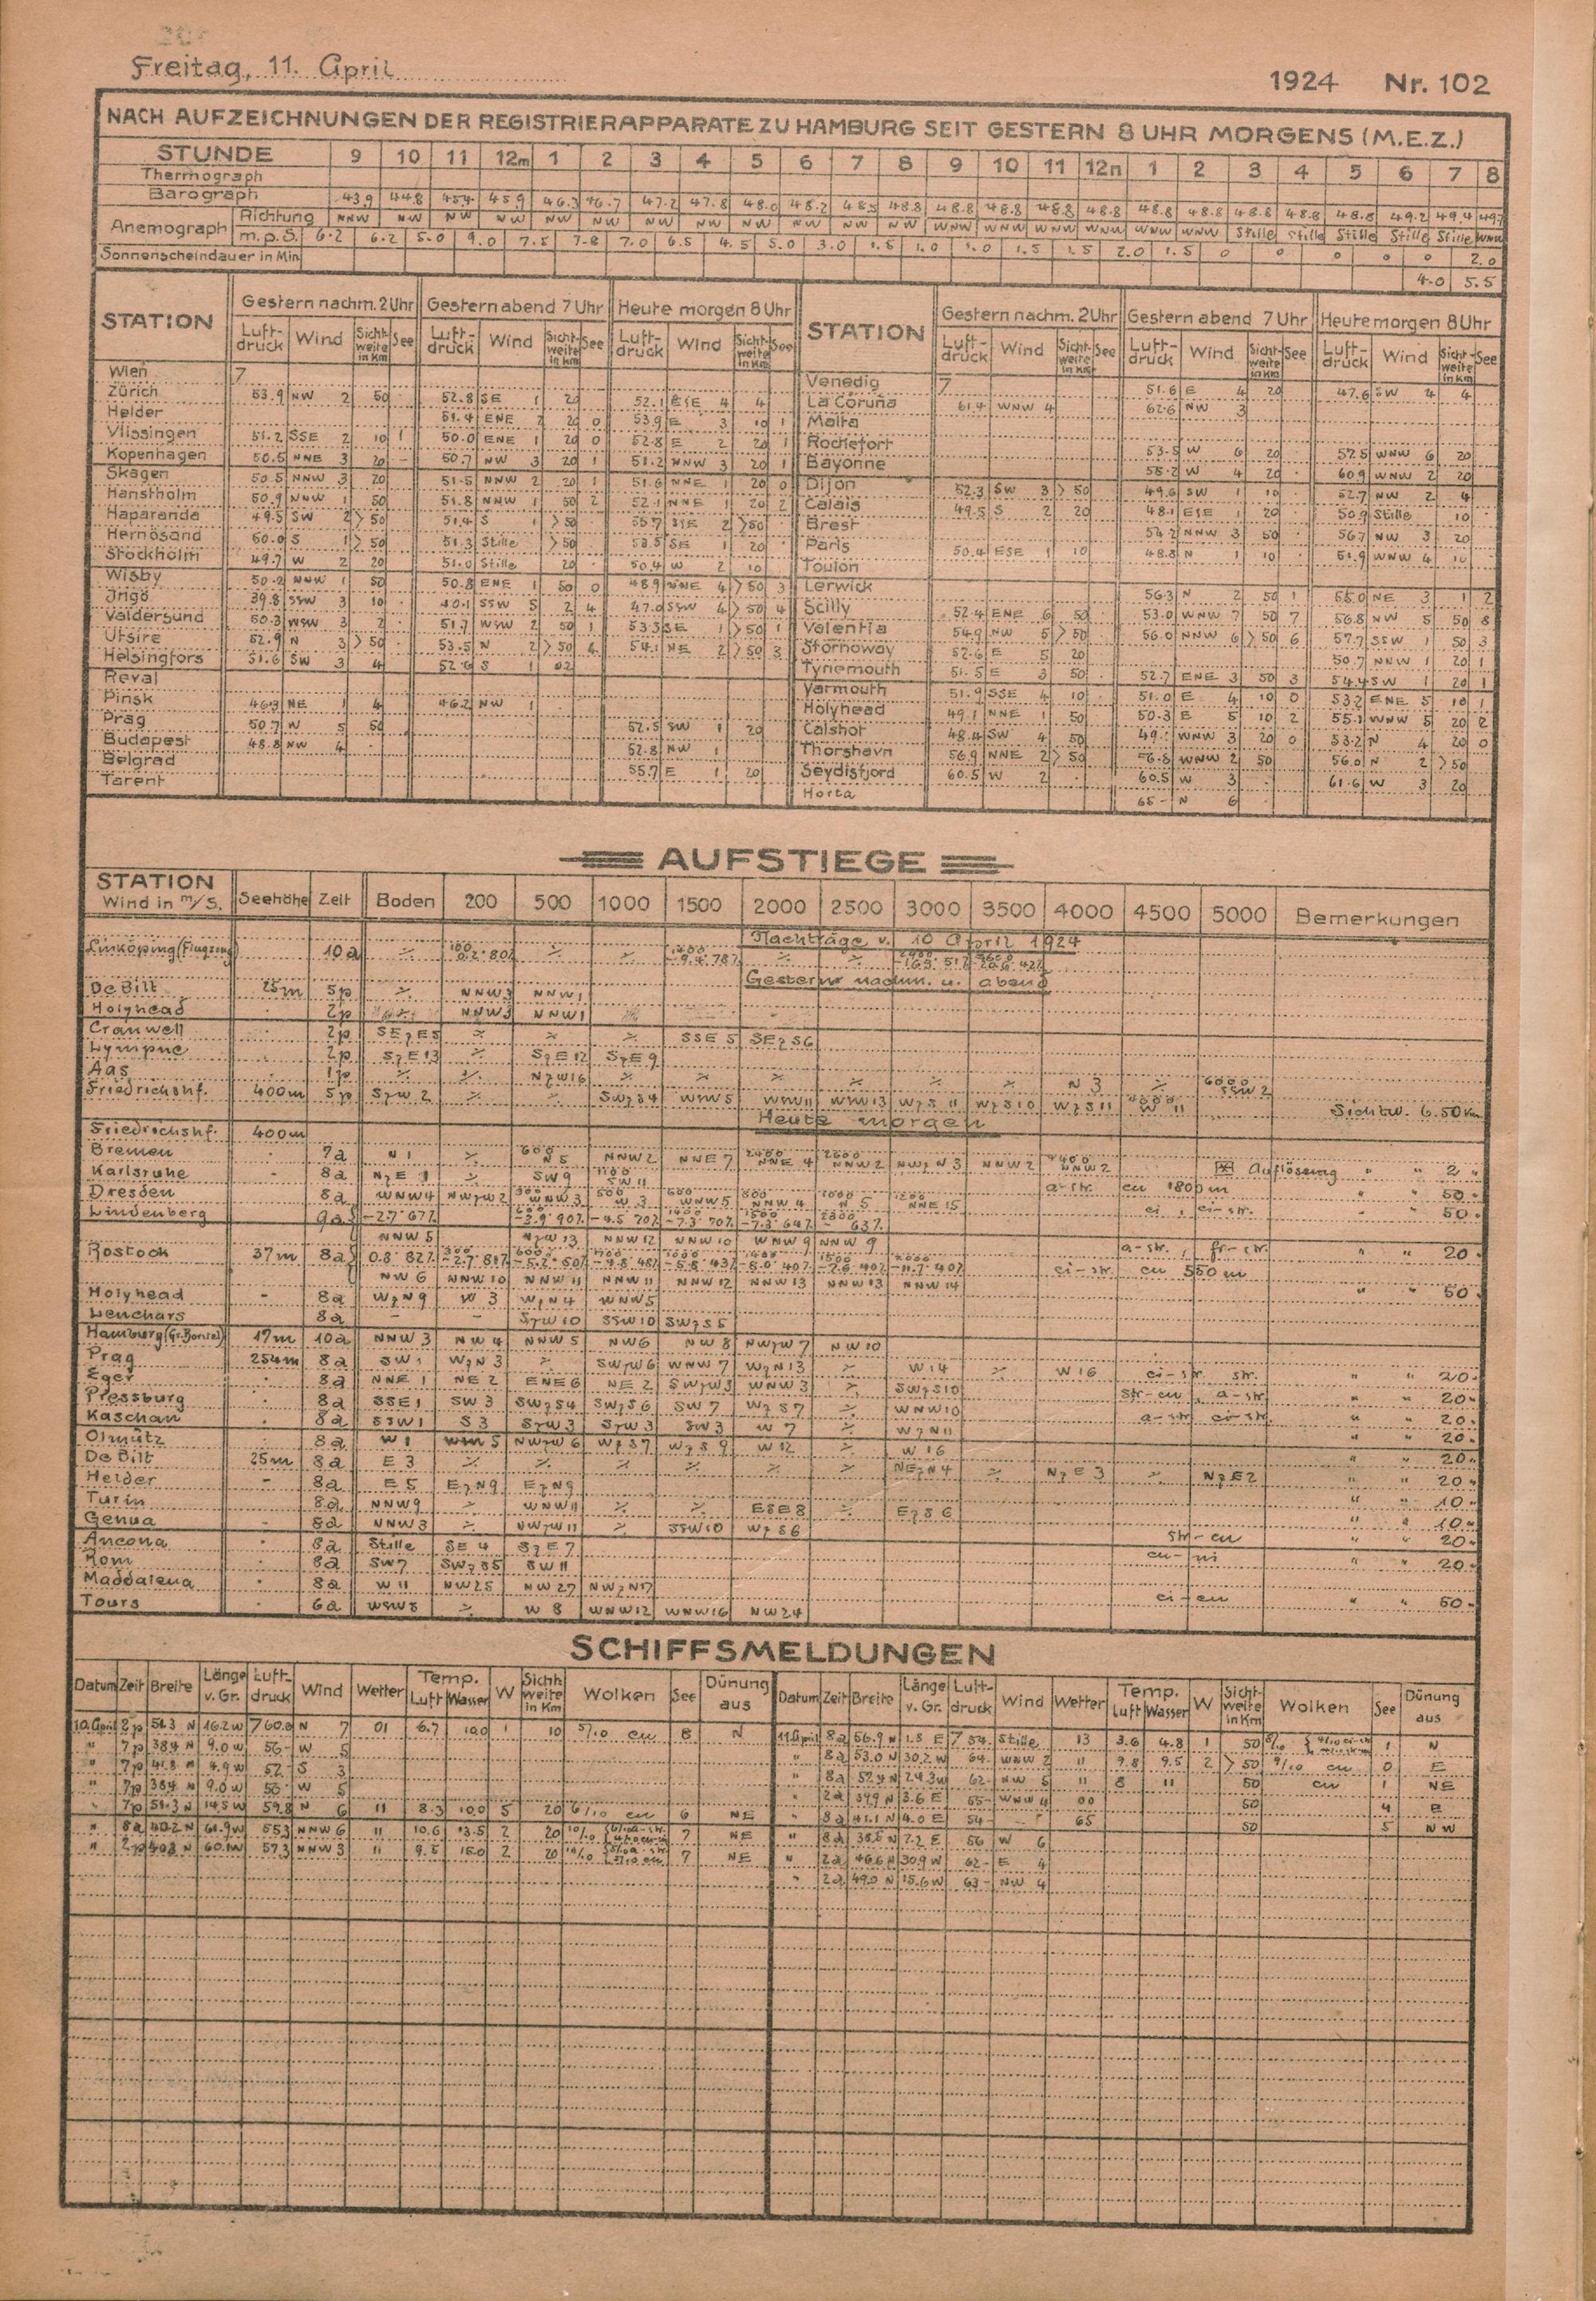 Freitag, 11. April 1924 Nr. 102
NACH AUFZEICHNUNGEN DER REGISTRIERAPPARATE ZU HAMBURG SEIT GESTERN 8 UHR MORGENS (M.E.Z.)
STUNDE 9 10 11 12m 1 2 3 4 5 6 7 8 9 10 11 12n 1 2 3 4 5 6 7 8
Thermograph
Barograph 43.9 44.8 45.4 45.9 46.3 46.7 47.2 47.8 48.0 48.2 48.5 48.8 48.8 48.8 48.8 48.8 48.8 48.8 48.8 48.8 48.8 49.2 49.4 49.7
Anemograph Richtung NNW NW NW NW NW NW NW NW NW NW NW NW WNW WNW WNW WNW WNW WNW Stille Stille Stille Stille Stille WNW
m.p.S. 6.2 6.2 5.0 9.0 7.5 7.8 7.0 6.5 4.5 5.0 3.0 1.5 1.0 1.0 1.5 1.5 2.0 1.5 0 0 0 0 0 2.0
Sonnenscheindauer in Min 4.0 5.5
STATION Gestern nachm. 2 Uhr Gestern abend 7 Uhr Heute morgen 8 Uhr STATION Gestern nachm. 2 Uhr Gestern abend 7 Uhr Heute morgen 8 Uhr
Luft-druck Wind Sicht-weite in Km See Luft-druck Wind Sicht-weite in Km See Luft-druck Wind Sicht-weite in Km See Luft-druck Wind Sicht-weite in Km See Luft-druck Wind Sicht-weite in Km See Luft-druck Wind Sicht-weite in Km See
Wien 7 Venedig 7 51.6 E 4 20 47.6 SW 4 4
Zürich 53.9 NW 2 50 52.8 SE 1 20 52.1 ESE 4 4 La Coruña 61.4 WNW 4 62.6 NW 3
Helder 51.4 ENE 2 20 0 53.9 E 3 10 1 Malta
Vlissingen 51.2 SSE 2 10 1 50.0 ENE 1 20 0 52.8 E 2 20 1 Rochefort 53.5 W 6 20 57.5 WNW 6 20
Kopenhagen 50.5 NNE 3 20 - 50.7 NW 3 20 1 51.2 NNW 3 20 1 Bayonne 55.2 W 4 20 60.9 WNW 2 20
Skagen 50.5 NNW 3 20 51.5 NNW 2 20 1 51.6 NNE 1 20 0 Dijon 52.3 SW 3 >50 49.6 SW 1 10 52.7 NW 2 4
Hanstholm 50.9 NNW 1 50 51.8 NNW 1 50 2 52.1 NNE 1 20 2 Calais 49.5 S 2 20 48.1 ESE 1 20 50.9 Stille 10
Haparanda 49.5 SW 2 >50 51.4 S 1 >50 55.7 SSE 2 >50 Brest 54.2 NNW 3 50 56.7 NW 3 20
Hernösand 50.0 S 1 >50 51.3 Stille >50 53.5 SE 1 20 Paris 50.4 ESE 1 10 48.8 N 1 10 51.9 WNW 4 10
Stockholm 49.7 W 2 20 51.0 Stille 20 50.4 W 2 10 Toulon
Wisby 50.2 NNW 1 50 50.8 ENE 1 50 0 48.9 NNE 4 >50 3 Lerwick 56.3 N 2 50 1 55.0 NE 3 1 2
Jngö 39.8 SSW 3 10 40.1 SSW 5 2 4 47.0 SSW 4 >50 4 Scilly 52.4 ENE 6 50 53.0 WNW 7 50 7 56.8 NW 5 50 8
Valdersund 50.3 WSW 3 2 51.7 WSW 2 50 1 53.3 SE 1 >50 1 Valentia 54.9 NW 5 >50 56.0 NNW 6 >50 6 57.7 SSW 1 50 3
Utsire 52.9 N 3 >50 53.5 N 2 >50 4 54.1 NE 2 >50 3 Stornoway 52.6 E 5 20 50.7 NNW 1 20 1
Helsingfors 51.6 SW 3 4 52.6 S 1 02 Tynemouth 51.5 E 3 50 52.7 ENE 3 50 3 54.4 SW 1 20 1
Reval Yarmouth 51.9 SSE 4 10 51.0 E 4 10 0 53.2 ENE 5 10 1
Pinsk 46.3 NE 1 4 46.2 NW 1 Holyhead 49.1 NNE 1 50 50.3 E 5 10 2 55.1 WNW 5 20 2
Prag 50.7 W 5 50 52.5 SW 1 20 Calshot 48.4 SW 4 50 WNW 3 20 0 53.2 N 4 20 0
Budapest 48.8 NW 4 52.8 NW 1 Thorshavn 56.9 NNE 2 >50 56.8 WNW 2 50 56.0 N 2 >50
Belgrad 55.7 E 1 20 Seydisfjord 60.5 W 2 60.5 W 3 61.6 W 3 20
Tarent Horta 65- N 6
AUFSTIEGE
STATION Wind in m/S. Seehöhe Zeit Boden 200 500 1000 1500 2000 2500 3000 3500 4000 4500 5000 Bemerkungen
Nachträge v. 10 April 1924
Linköping (Flugzeug) 10a ⁒ ⁒ ⁒ ⁒ ⁒
Gestern nachm. u. abend
De Bilt 25m 5p ⁒ NNW3 NNW1
Holyhead 2p NNW3 NNW1
Cranwell 2p SEzE5 ⁒ ⁒ ⁒ SSE 5 SEzS6
Lympne 2p SzE13 ⁒ SzE12 SzE9
Aas 1p ⁒ ⁒ NzW16 ⁒ ⁒ ⁒ ⁒ ⁒ ⁒ N 3 ⁒ 6000 SSW 2
Friedrichshf. 400m 5p SzW 2 ⁒ ⁒ SWzS4 WSW 5 WNW11 WSW13 WzS 11 WzS10 WzS11 W 11 Sichtw. 6.50 Km
Heute morgen
Friedrichshf. 400m
Bremen 7a N 1 ⁒ 600 N5 NNW2 NNE 7 2400 NNE 4 2600 NNW2 NWzN3 NNW2 4400 NNW2 Auflösung " " 2 "
Karlsruhe 8a NzE 1 ⁒ SW9 1100 SW11 a-str. cu 1800m " " 50
Dresden 8a WNW4 NWzW2 300 WNW3 500 W 3 600 WNW5 800 NNW 4 1000 N 5 1200 NNE 15 ci, ci-str. " " 50
Lindenberg 9a -2.7 67% -3.9 90% -4.5 70% -7.3 70% -7.3 64% 63%
NNW 5 NzW13 NNW12 NNW10 WNW 9 NNW 9 a-str., fr-str. " " 20
Rostock 37m 8a 0.8 82% ci-str. cu 550m
NW 6 NNW10 NNW11 NNW11 NNW12 NNW13 NNW13 NNW14 " " 50
Holyhead - 8a WzN9 W 3 WzN4 WNW5
Leuchars 8a - - SzW10 SSW10 SWzS5
Hamburg (Gr. Borstel) 17m 10a NNW 3 NW 4 NNW 5 NW6 NW 8 NWzW 7 NW10
Prag 254m 8a SW1 WzN 3 ⁒ SWzW6 WNW 7 WzN13 ⁒ W14 ⁒ W16 ci-str str. " " 20
Eger 8a NNE 1 NE 2 ENE6 NE 2 SWzW3 WNW 3 ⁒ SWzS10 str-cu a-str. " " 20
Pressburg 8a SSE1 SW 3 SWzS4 SWzS6 SW 7 WzS7 ⁒ WNW10 a-str ci-str. " " 20
Kaschau 8a SSW1 S 3 SzW3 SzW3 SW 3 W 7 ⁒ WzN11 " " 20
Olmütz 8a W1 5 NWzW6 WzS7 WzS9 W 12 ⁒ W 16 " " 20
De Bilt 25m 8a E 3 ⁒ ⁒ ⁒ ⁒ ⁒ ⁒ NEzN4 ⁒ NzE 3 ⁒ NzE2 " " 20
Helder - 8a E 5 EzN9 EzN9 " " 10
Turin 8a NNW9 ⁒ WNW11 ⁒ ⁒ ESE8 ⁒ EzS6 " " 10
Genua - 8a NNW3 ⁒ NWzW11 ⁒ SSW10 WzS6 str-cu " " 20
Ancona 8a Stille SE 4 SzE7 cu-ni " " 20
Rom 8a SW7 SWzS5 SW11
Maddalena 8a W 11 NW25 NW27 NWzN17 ci-cu " " 50
Tours 6a WSW8 ⁒ W 8 WNW12 WNW16 NW24
SCHIFFSMELDUNGEN
Datum Zeit Breite Länge v. Gr. Luft-druck Wind Wetter Temp. Luft Wasser W Sicht-weite in Km Wolken See Dünung aus Datum Zeit Breite Länge v. Gr. Luft-druck Wind Wetter Temp. Luft Wasser W Sicht-weite in Km Wolken See Dünung aus
10.April 2p 51.3 N 16.2 W 760.0 N 7 01 6.7 10.0 1 10 5/10 cu 8 N 11.April 8a 56.9 N 1.5 E 754. Stille 13 3.6 4.8 1 50 1 N
" 7p 38.4 N 9.0 W 56- W 5 " 8a 53.0 N 30.2 W 64. WNW 2 11 9.8 9.5 2 >50 9/10 cu 0 E
" 7p 41.8 N 4.9 W 52- S 3 " 8a 57.4 N 24.3 W 62- NW 5 11 8 11 50 cu 1 NE
" 7p 38.4 N 9.0 W 56- W 5 " 2a 39.9 N 3.6 E 55- WNW 4 00 50 4 E
" 7p 51.3 N 14.5 W 59.8 N 6 11 8.3 10.0 5 20 6/10 cu 6 NE " 8a 41.1 N 4.0 E 54 65 50 5 NW
" 8a 40.2 N 61.9 W 55.3 NNW 6 11 10.6 13.5 2 20 10/10 7 NE " 8a 38.5 N 7.2 E 56 W 6
" 2p 60.1 W 57.3 NNW 3 11 9.5 15.0 2 20 10/10 7 NE " 2a 46.6 N 30.9 W 62- E 4
" 2a 49.0 N 15.6 W 63- NW 4